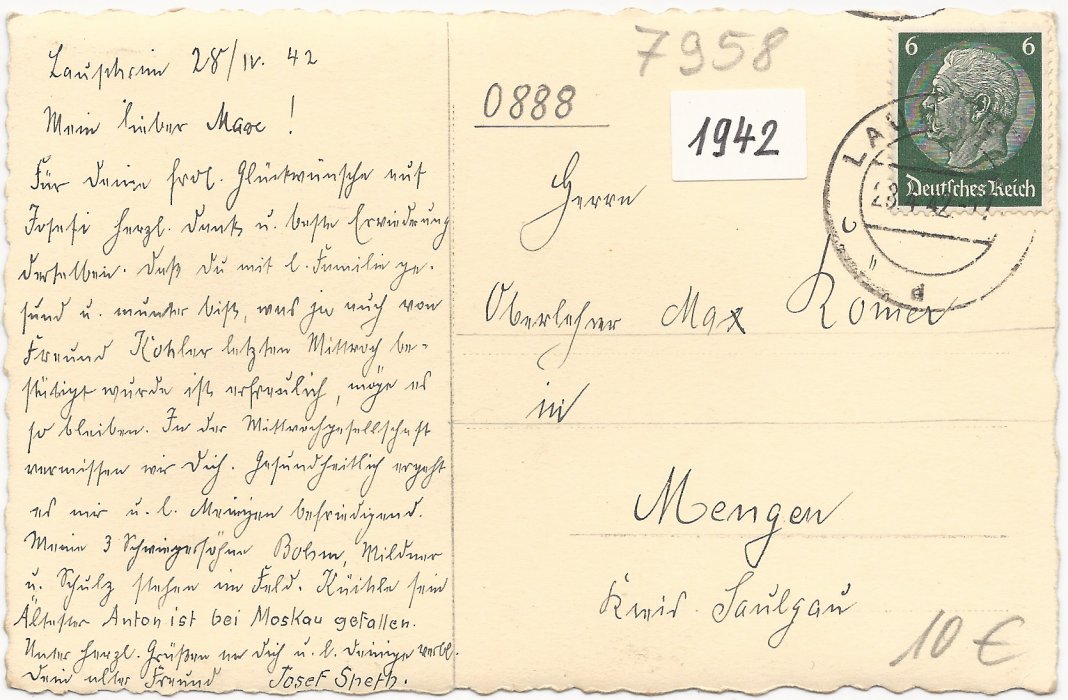 Laupheim 28/IV. 42
Mein lieber Max !
Für Deine frdl. Glückwünsche auf
Josefi herzl. Dank u. beste Erwiederung
derselben. Daß Du mit l. Familie ge-
sund u. munter bist, was ja auch von
Freund Kohler letzten Mittwoch be-
stätigt wurde ist erfreulich, möge es
so bleiben. In der Mittwochgesellschaft
vermissen wir Dich. Gesundheitlich ergeht
es mir u. l. Meinigen befriedigend.
Meine 3 Schwiegersöhne Bohm, Mildner
u. Schulz stehen im Feld. sein
Ältester Anton ist bei Moskau gefallen.
Unter herzl. Grüßen an Dich u. l. Deinige verbl.
Dein alter Freund Josef Speth.
7958
0888
1942
6 6
Deutsches Reich
LAU
28.4.42.-17
d
Herrn
Oberlehrer Max Romer
in
Mengen
Kreis Saulgau
10 €